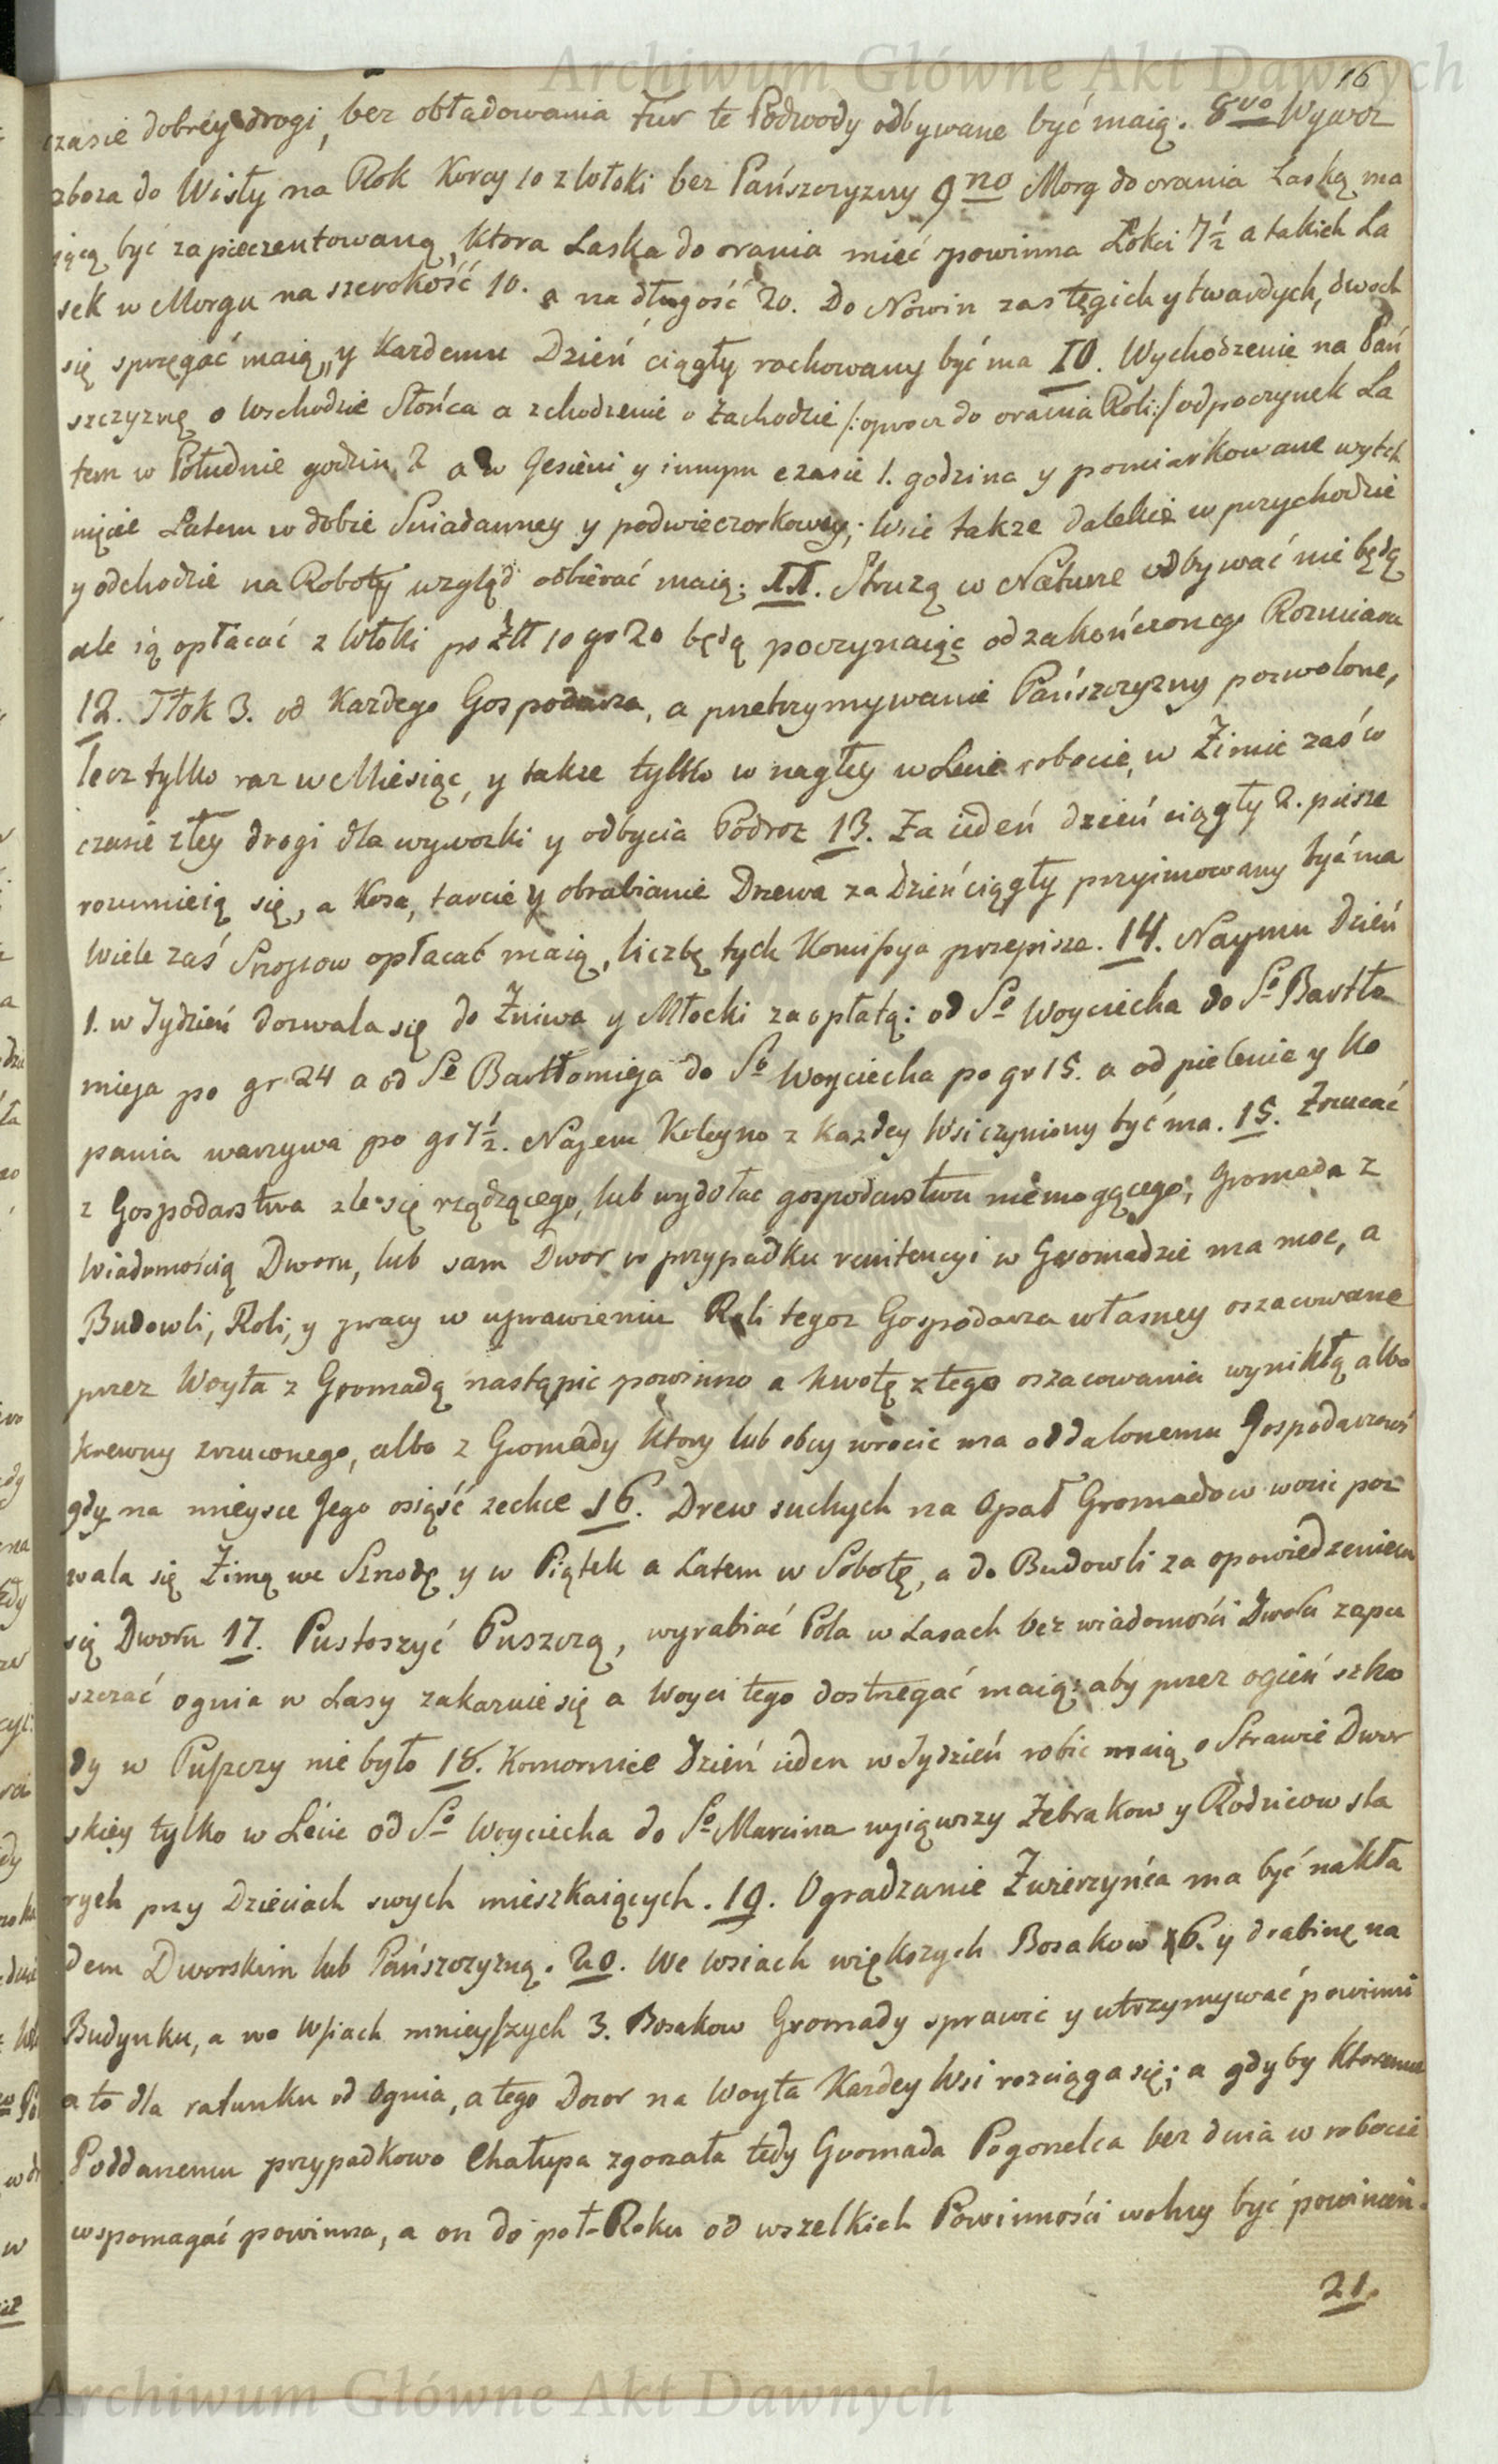 Archiwum Główne Akt Dawnych
16
czasie dobrey drogi, bez obładowania fur te Podwody odbywane być maią. 8vo Wywoz
zboza do Wisły na Rok Korcy 10 z włoki bez Pańszczyzny 9no Morg do orania Laską ma
iącą być zapieczentowaną, ktora Laska do orania mieć powinna Łokci 7½ a takich La
sek w Morgu na szerokość 10. a na długość 20. Do Nowin zas tęgich y twardych, dwoch
się sprzęgać maią, y Kazdemu Dzień ciągły rachowany być ma 10. Wychodzenie na Pań
szczyznę o Wschodzie Słońca a zchodzenie o Zachodzie /: oprocz do orania Roli :/ odpoczynek La
tem w Południe godzin 2 a w Jesieni y innym czasie 1. godzina y pomiarkowane wytch
nięcie Latem w dobie Sniadanney y podwieczorkowey; Wsie takze dalekie w przychodzie
y odchodzie na Roboty wzgląd odbierać maią; 11. Struzą w Naturze odbywać nie będą
ale ią opłacać z Włoki po Złł 10 gr 20 będą poczynaiąc od zakończonego Rozmiaru
12. Tłok 3. od Kazdego Gospodarza, a przetrzymywanie Pańszczyzny pozwolone,
lecz tylko raz w Miesiąc, y takze tylko w nagłey w Lecie robocie, w Zimie zaś w
czasie złey drogi dla wywozki y odbycia Podroz 13. Za ieden dzień ciągły 2. piesze
rozumieią się, a Kosa, tarcie y obrabianie Drzewa za Dzień ciągły przyimowany być ma
Wiele zaś opłacać maią, liczbę tych Komissya przepisze. 14. Naymu Dzień
1. w Tydzień dozwala się do Zniwa y Młocki za opłatą: od So Woyciecha do So Bartło
mieja po gr 24 a od So Bartłomieja do So Woyciecha po gr 15. a od pielenia y Ko
pania warzywa po gr 7½. Najem Koleyno z Kazdey Wsi czyniony być ma. 15. Zrzucać
z Gospodarstwa zle się rządzącego, lub wydołac gospodarstwu niemogącego, Gromada z
Wiadomością Dworu, lub sam Dwor w przypadku renitencyi w Gromadzie ma moc, a
Budowli, Roli, y pracy w uprawieniu Roli tegoz Gospodarza własney oszacowanie
przez Woyta z Gromadą nastąpic powinno a kwotę z tego oszacowania wynikłą albo
krewny zrzuconego, albo z Gromady ktory lub obcy wrocic ma oddalonemu Gospodarzowi
gdy na mieysce Jego osiąść zechce 16. Drew suchych na Opał Gromadow wozic poz
wala się Zimą we Srzodę y w Piątek a Latem w Sobotę, a do Budowli za opowiedzeniem
się Dworu 17. Pustoszyć Puszczą, wyrabiać Pola w Lasach bez wiadomości Dworu zapu
szczać ognia w Lasy zakazuie się a Woyci tego dostrzegać maią: aby przez ogień szko
dy w Puszczy nie było 18. Komornice Dzień ieden w Tydzień robic maią o Strawie Dwor
skiey tylko w Lecie od So Woyciecha do So Marcina wyiąwszy Zebrakow y Rodzicow sta
rych przy Dzieciach swych mieszkaiących. 19. Ogradzanie Zwierzyńca ma być nakła
dem Dworskim lub Pańszczyzną. 20. We wsiach większych Bosakow 6. y drabinę na
Budynku, a we Wsiach mnieyszych 3. Bosakow Gromady sprawić y utrzymywać powinni
a to dla ratunku od Ognia, a tego Dozor na Woyta Kazdey Wsi rozciąga się; a gdyby Ktoremu
Poddanemu przypadkowo Chałupa zgorzała tedy Gromada Pogorzelca bez dnia w robocie
wspomagać powinna, a on do poł-Roku od wszelkich Powinności wolny być powinien.
21.
Archiwum Główne Akt Dawnych